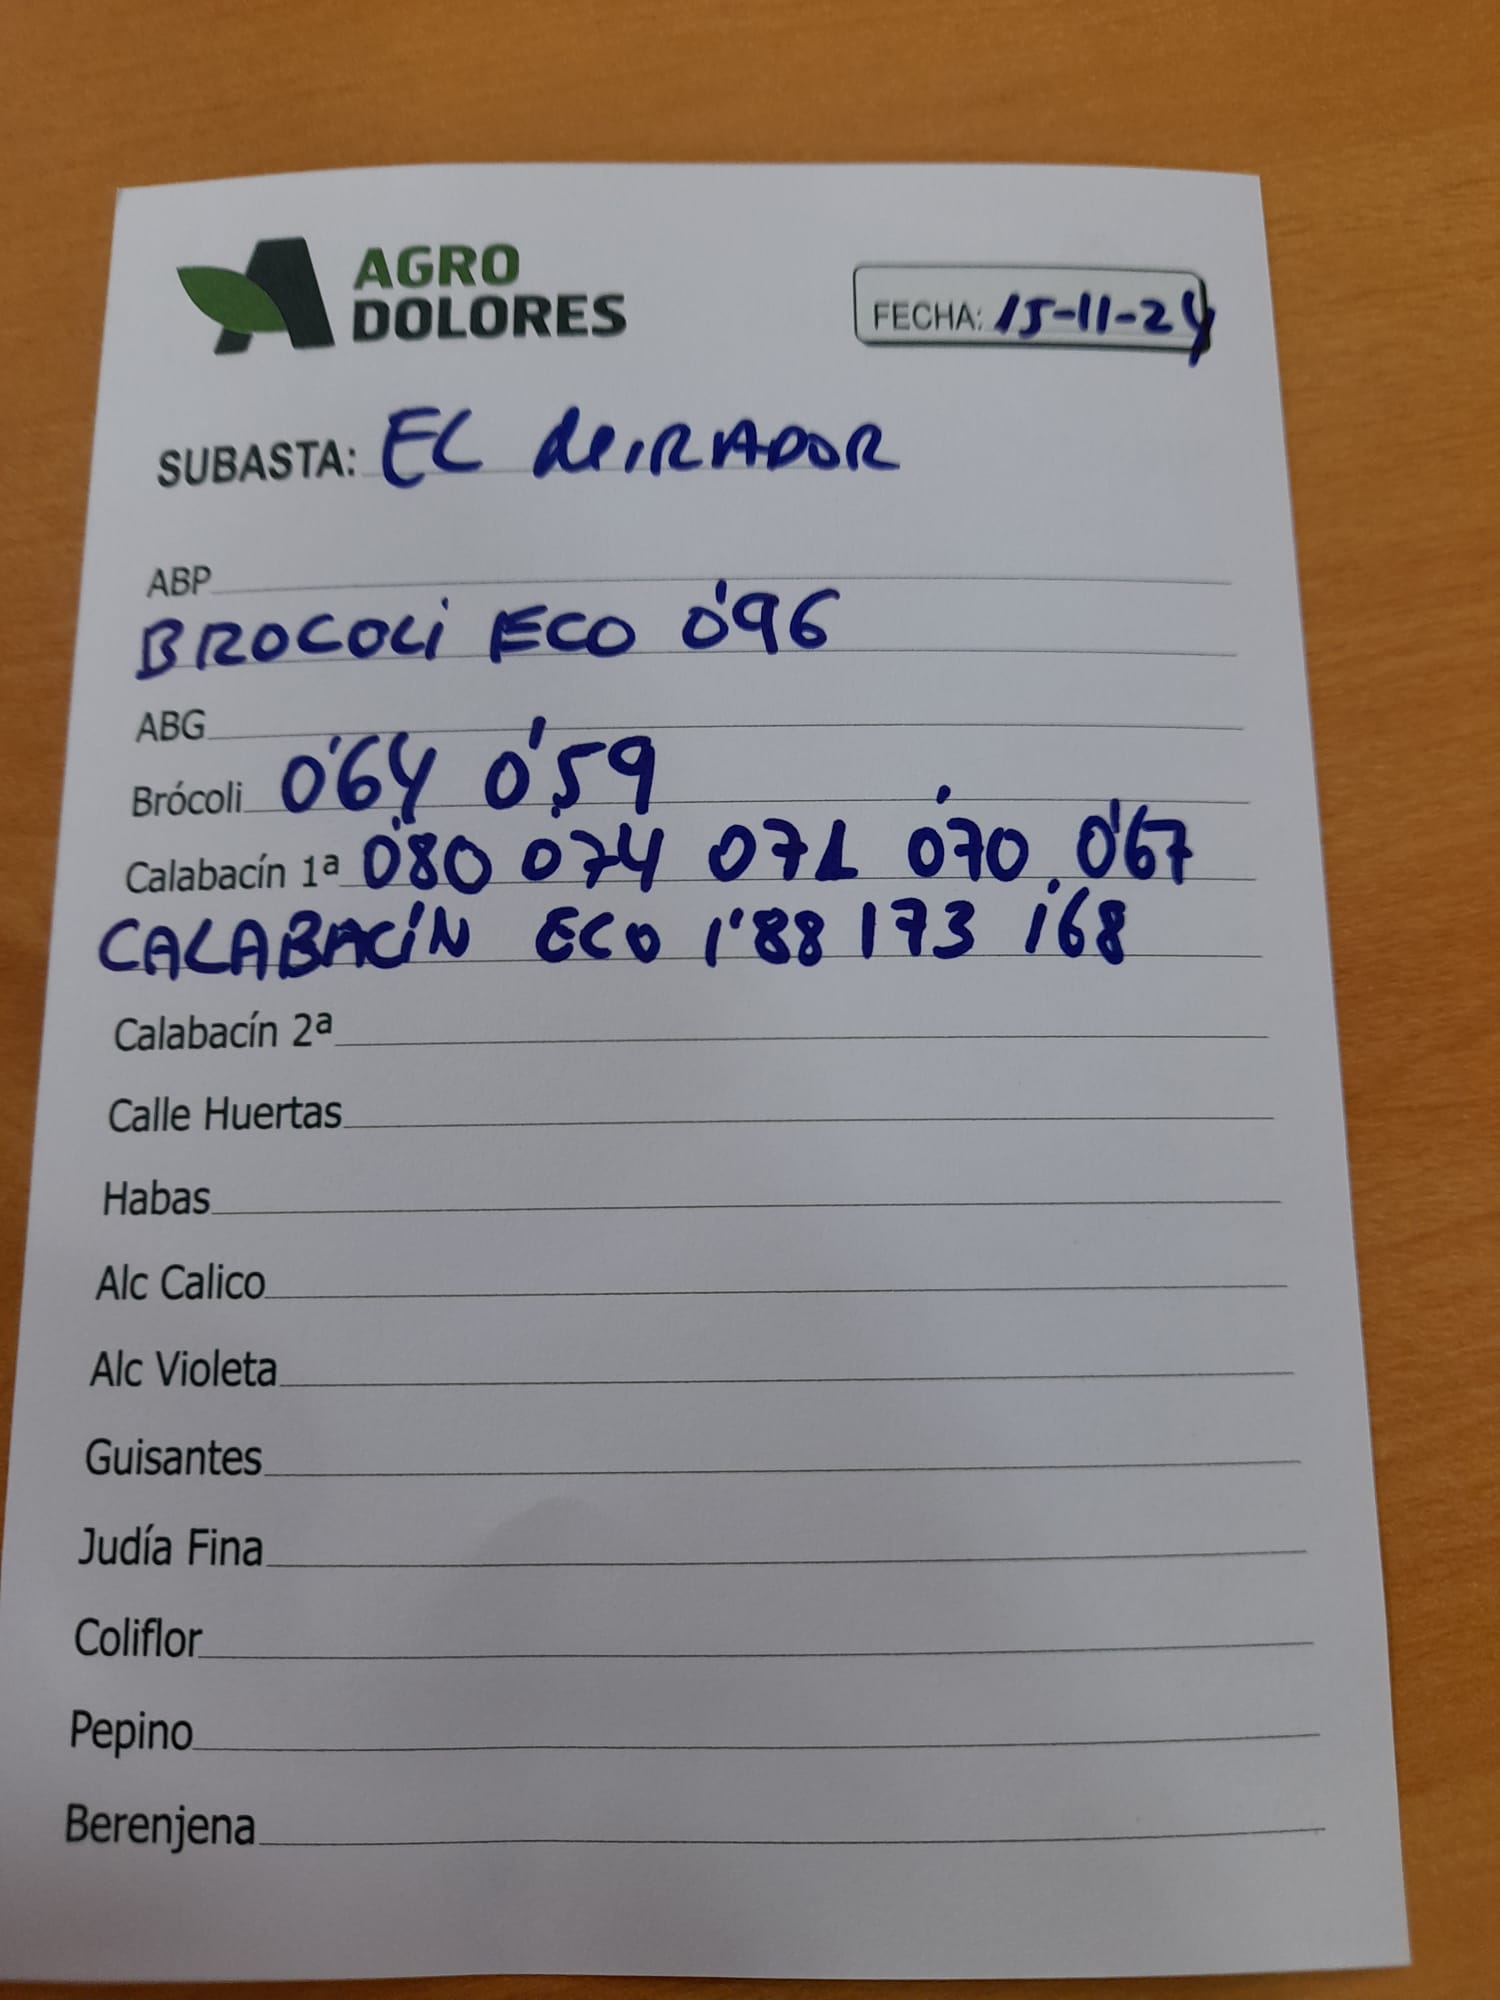 AGRO
DOLORES
FECHA: 15-11-24
SUBASTA: EL MIRADOR
ABP
BROCOLI ECO 0'96
ABG
Brócoli 0'64 0'59
Calabacín 1ª 0'80 0'74 071 0'70 0'67
CALABACÍN ECO 1'88 173 1'68
Calabacín 2ª
Calle Huertas
Habas
Alc Calico
Alc Violeta
Guisantes
Judía Fina
Coliflor
Pepino
Berenjena